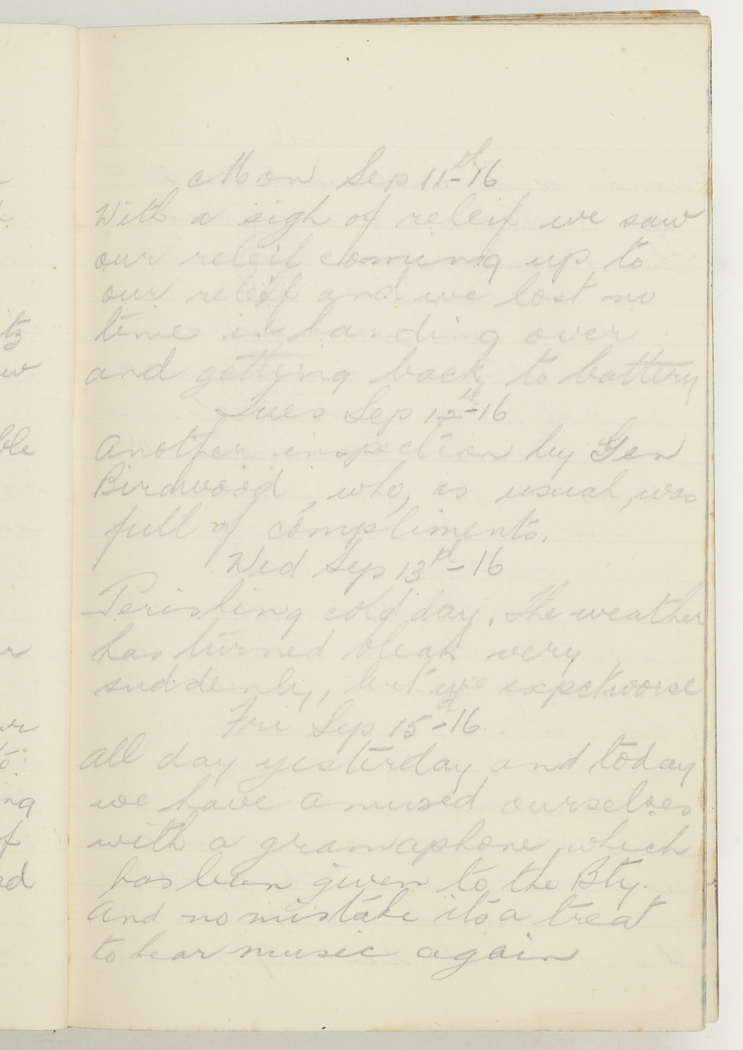 Mon Sep 11th-16
With a sigh of releif we saw
our releif coming up to
our releif and we lost no
time in handing over
and getting back to battery
Tues Sep 12th-16
another inspection by Gen
Birdwood, who, as usual, was
full of compliments.
Wed Sep 13th-16
Perishing cold day. The weather
has turned bleak very
suddenly, but we expect worse
Fri Sep 15th-16.
all day yesterday and today
we have amused ourselves
with a gramaphone which
has been given to the Bty.
And no mistake its a treat
to hear music again